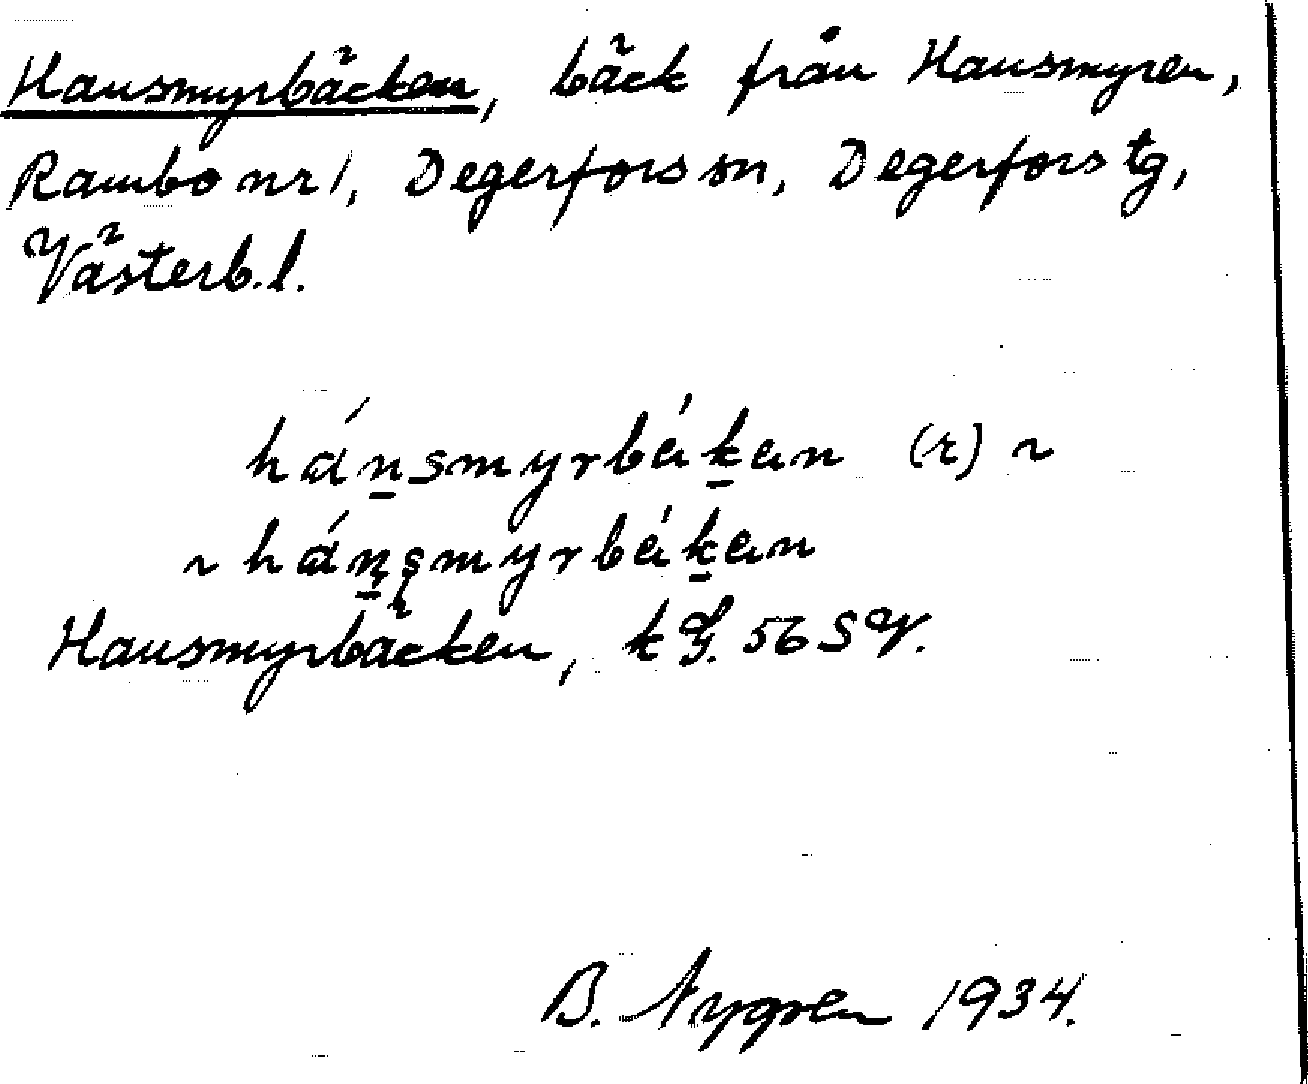 Hansmyrbäcken, bäck från Hansmyren,
Rambo nr 1, Degerfors sn, Degerfors tg,
Västerb.l.
hánsmyrbékan (r) ~
~ hánşmyrbékan
Hansmyrbäcken, k G. 56 SV.
B. Nygren 1934.